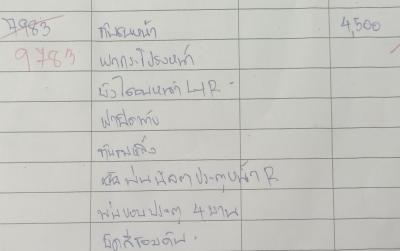 7983 กันชนหน้า 4,500
9783 ฝากระโปรงหน้า
บังโคลนหน้า L/R
ฝาปิด
กันชนหลัง
พ่น ประตูหน้า R
พ่นขอบประตู 4 บาน
ขัดสีรอบคัน.